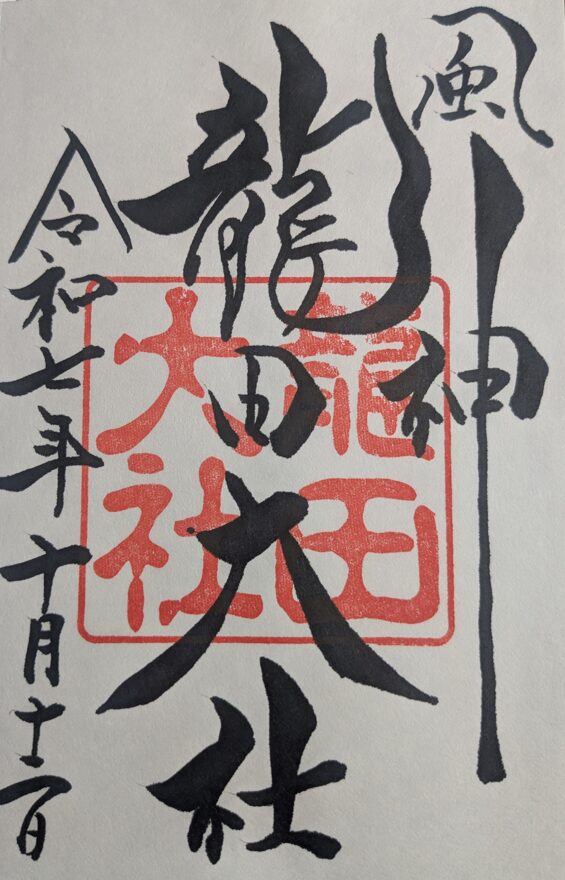 風神
龍田大社
令和七年十月十二日
龍田
大社